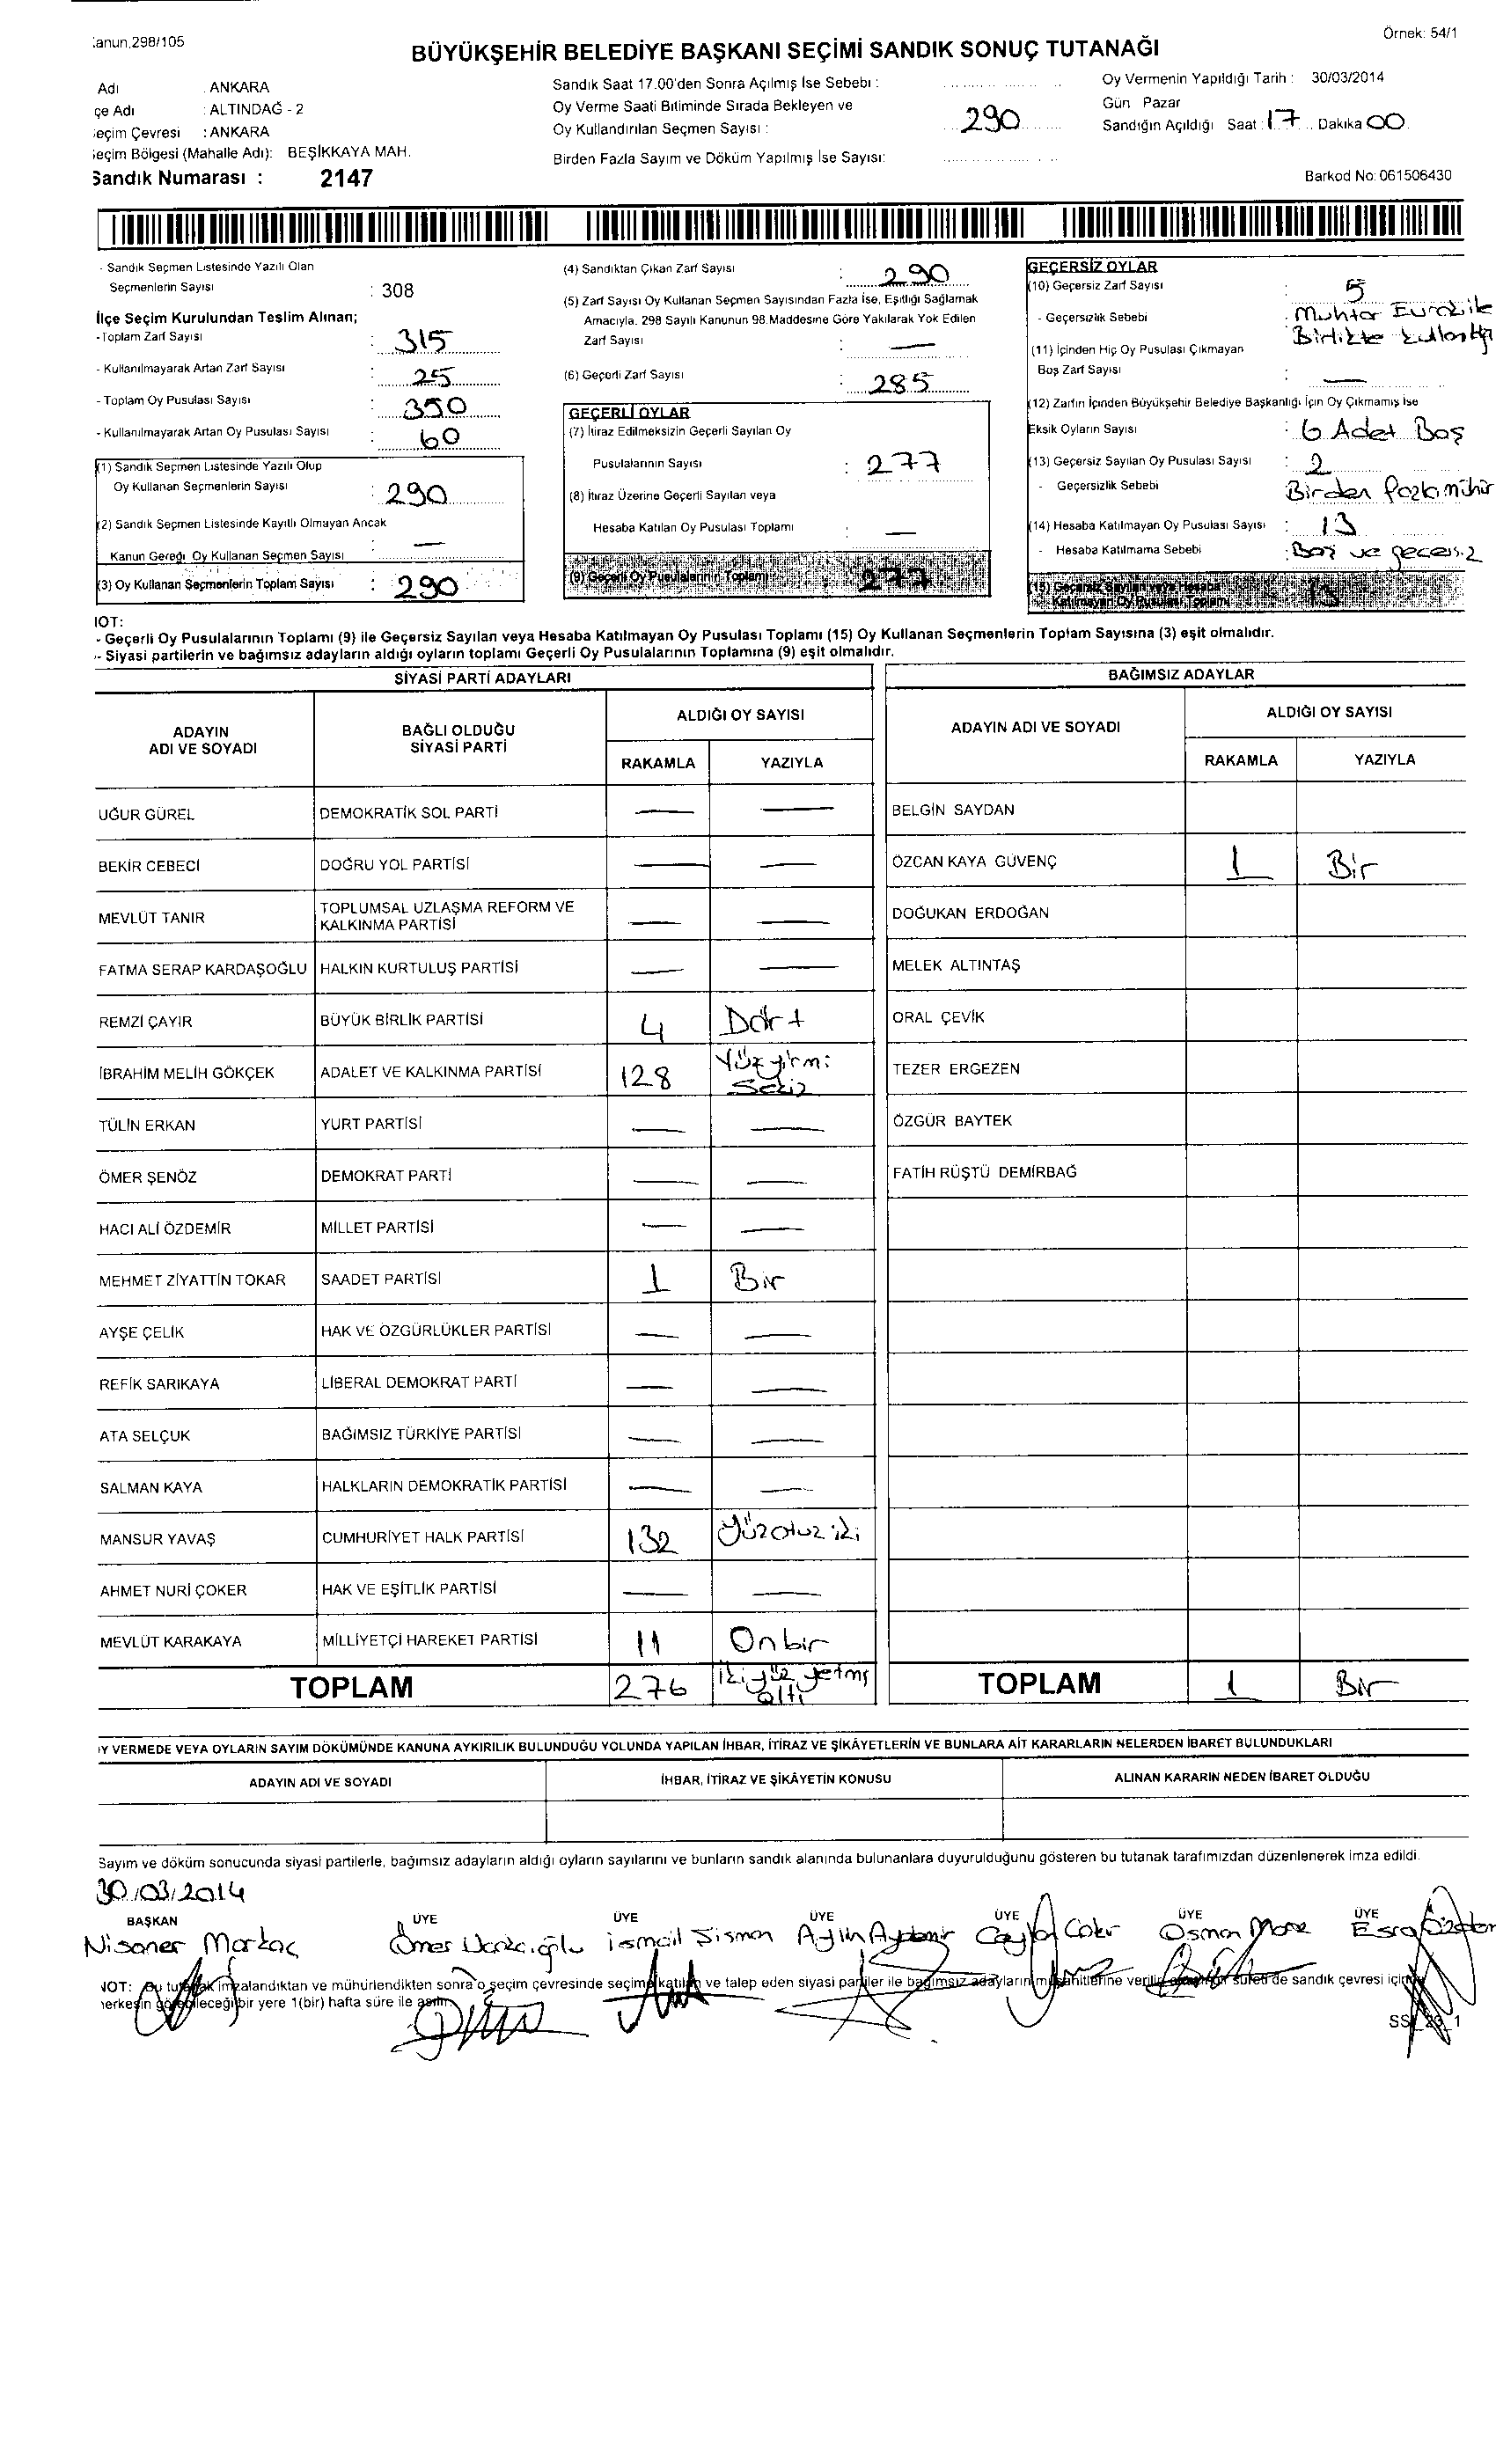 :anun,298/105
Örnek: 54/1
BÜYÜKŞEHİR BELEDİYE BAŞKANI SEÇİMİ SANDIK SONUÇ TUTANAĞI
Adı : ANKARA
çe Adı : ALTINDAĞ - 2
eçim Çevresi : ANKARA
eçim Bölgesi (Mahalle Adı): BEŞİKKAYA MAH.
Sandık Numarası : 2147
Sandık Saat 17.00'den Sonra Açılmış İse Sebebi :
Oy Verme Saati Bitiminde Sırada Bekleyen ve
Oy Kullandırılan Seçmen Sayısı : 290
Birden Fazla Sayım ve Döküm Yapılmış İse Sayısı:
Oy Vermenin Yapıldığı Tarih : 30/03/2014
Gün Pazar
Sandığın Açıldığı Saat : 17 Dakika 00
Barkod No: 061506430
- Sandık Seçmen Listesinde Yazılı Olan
Seçmenlerin Sayısı : 308
İlçe Seçim Kurulundan Teslim Alınan;
-Toplam Zarf Sayısı : 315
- Kullanılmayarak Artan Zarf Sayısı : 25
- Toplam Oy Pusulası Sayısı : 350
- Kullanılmayarak Artan Oy Pusulası Sayısı : 60
(1) Sandık Seçmen Listesinde Yazılı Olup
Oy Kullanan Seçmenlerin Sayısı : 290
(2) Sandık Seçmen Listesinde Kayıtlı Olmayan Ancak
Kanun Gereği Oy Kullanan Seçmen Sayısı : —
(3) Oy Kullanan Seçmenlerin Toplam Sayısı : 290
(4) Sandıktan Çıkan Zarf Sayısı : 290
(5) Zarf Sayısı Oy Kullanan Seçmen Sayısından Fazla İse, Eşitliği Sağlamak
Amacıyla, 298 Sayılı Kanunun 98.Maddesine Göre Yakılarak Yok Edilen
Zarf Sayısı : —
(6) Geçerli Zarf Sayısı : 285
GEÇERLİ OYLAR
(7) İtiraz Edilmeksizin Geçerli Sayılan Oy
Pusulalarının Sayısı : 277
(8) İtiraz Üzerine Geçerli Sayılan veya
Hesaba Katılan Oy Pusulası Toplamı : —
(9) Geçerli Oy Pusulalarının Toplamı : 277
GEÇERSİZ OYLAR
(10) Geçersiz Zarf Sayısı : 5
- Geçersizlik Sebebi : Muhtar Evrak ile
Birlikte
(11) İçinden Hiç Oy Pusulası Çıkmayan
Boş Zarf Sayısı : —
(12) Zarfın İçinden Büyükşehir Belediye Başkanlığı İçin Oy Çıkmamış İse
Eksik Oyların Sayısı : 6 Adet Boş
(13) Geçersiz Sayılan Oy Pusulası Sayısı : 2
- Geçersizlik Sebebi Birden fazla mühür
(14) Hesaba Katılmayan Oy Pusulası Sayısı : 13
- Hesaba Katılmama Sebebi : Boş ve geçersiz
(15) Geçersiz Sayılan veya Hesaba
Katılmayan Oy Pusulası Toplamı 13
IOT:
- Geçerli Oy Pusulalarının Toplamı (9) ile Geçersiz Sayılan veya Hesaba Katılmayan Oy Pusulası Toplamı (15) Oy Kullanan Seçmenlerin Toplam Sayısına (3) eşit olmalıdır.
- Siyasi partilerin ve bağımsız adayların aldığı oyların toplamı Geçerli Oy Pusulalarının Toplamına (9) eşit olmalıdır.
SİYASİ PARTİ ADAYLARI
ADAYIN
ADI VE SOYADI
BAĞLI OLDUĞU
SİYASİ PARTİ
ALDIĞI OY SAYISI
RAKAMLA YAZIYLA
UĞUR GÜREL DEMOKRATİK SOL PARTİ — —
BEKİR CEBECİ DOĞRU YOL PARTİSİ — —
MEVLÜT TANIR TOPLUMSAL UZLAŞMA REFORM VE
KALKINMA PARTİSİ — —
FATMA SERAP KARDAŞOĞLU HALKIN KURTULUŞ PARTİSİ — —
REMZİ ÇAYIR BÜYÜK BİRLİK PARTİSİ 4 Dört
İBRAHİM MELİH GÖKÇEK ADALET VE KALKINMA PARTİSİ 128 Yüzyirmi
Sekiz
TÜLİN ERKAN YURT PARTİSİ — —
ÖMER ŞENÖZ DEMOKRAT PARTİ — —
HACI ALİ ÖZDEMİR MİLLET PARTİSİ — —
MEHMET ZİYATTİN TOKAR SAADET PARTİSİ 1 Bir
AYŞE ÇELİK HAK VE ÖZGÜRLÜKLER PARTİSİ — —
REFİK SARIKAYA LİBERAL DEMOKRAT PARTİ — —
ATA SELÇUK BAĞIMSIZ TÜRKİYE PARTİSİ — —
SALMAN KAYA HALKLARIN DEMOKRATİK PARTİSİ — —
MANSUR YAVAŞ CUMHURİYET HALK PARTİSİ 132 Yüzotuz iki
AHMET NURİ ÇOKER HAK VE EŞİTLİK PARTİSİ — —
MEVLÜT KARAKAYA MİLLİYETÇİ HAREKET PARTİSİ 11 Onbir
TOPLAM 276 ikiyüz yetmş
altı
BAĞIMSIZ ADAYLAR
ADAYIN ADI VE SOYADI
ALDIĞI OY SAYISI
RAKAMLA YAZIYLA
BELGİN SAYDAN
ÖZCAN KAYA GÜVENÇ 1 Bir
DOĞUKAN ERDOĞAN
MELEK ALTINTAŞ
ORAL ÇEVİK
TEZER ERGEZEN
ÖZGÜR BAYTEK
FATİH RÜŞTÜ DEMİRBAĞ
TOPLAM 1 Bir
Y VERMEDE VEYA OYLARIN SAYIM DÖKÜMÜNDE KANUNA AYKIRILIK BULUNDUĞU YOLUNDA YAPILAN İHBAR, İTİRAZ VE ŞİKÂYETLERİN VE BUNLARA AİT KARARLARIN NELERDEN İBARET BULUNDUKLARI
ADAYIN ADI VE SOYADI İHBAR, İTİRAZ VE ŞİKÂYETİN KONUSU ALINAN KARARIN NEDEN İBARET OLDUĞU
Sayım ve döküm sonucunda siyasi partilerle, bağımsız adayların aldığı oyların sayılarını ve bunların sandık alanında bulunanlara duyurulduğunu gösteren bu tutanak tarafımızdan düzenlenerek imza edildi.
30/03/2014
BAŞKAN ÜYE ÜYE ÜYE ÜYE ÜYE ÜYE
Nisaner Ömer ismail Şişman Aylin Aydemir Osman Esra
NOT: Bu tutanak imzalandıktan ve mühürlendikten sonra o seçim çevresinde seçime katılan ve talep eden siyasi partiler ile bağımsız adayların müşahitlerine verilir sureti de sandık çevresi için
herkesin görebileceği bir yere 1(bir) hafta süre ile asılır.